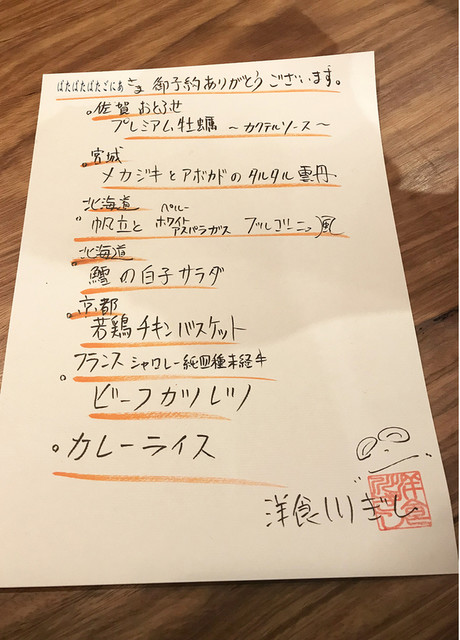 ぱたぱたぱたごにあさま 御予約ありがとうございます。
佐賀 おとふせ
プレミアム牡蠣 〜カクテルソース〜
宮城
メカジキとアボカドのタルタル 雲丹
北海道 ペルー
帆立と ホワイトアスパラガス ブルゴーニュ風
北海道
鱈の白子サラダ
京都
若鶏チキンバスケット
フランス シャロレー純血種未経牛
ビーフカツレツ
カレーライス
洋食川ぎし